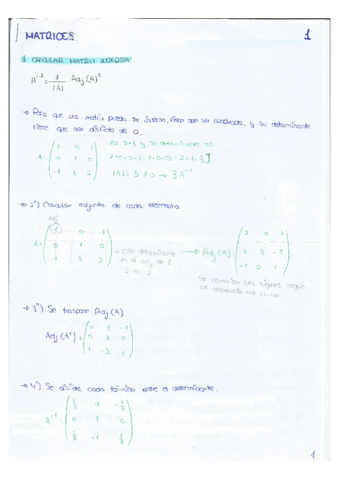 MATRICES. 1
1 CALCULAR MATRIZ INVERSA
A⁻¹ = 1/|A| Adj(A)ᵗ
→ Para que una matriz pueda ser inversa, tiene que ser cuadrada, y su determinante
tiene que ser distinto de 0.
A = (1 0 1 / 0 1 0 / -1 3 2) - es 3x3 y su determinante es
|A| = 3 ≠ 0 → ∃ A⁻¹
→ 2º) Calcular adjunto de cada elemento
Adj
A = (1 0 -1 / 0 1 0 / 1 3 2) → Este determinante es el adj de 1 → Adj(A) = (2 0 1 / 3 3 -3 / -1 0 1)
2-0=2
Se cambian los signos según
→ 3º) Se traspone Adj(A)
Adj(Aᵗ) = (2 3 -1 / 0 3 0 / 1 -3 1)
→ 4º) Se divide cada término entre el determinante.
A⁻¹ = (2/3 1 -1/3 / 0 1 0 / 1/3 -1 1/3)
1